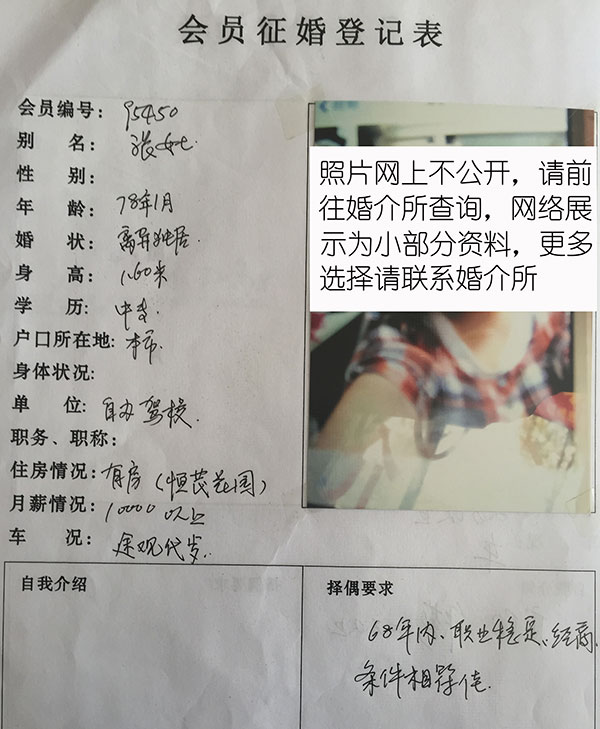 会员征婚登记表
会员编号: 95450
别 名: 张女士
性 别:
年 龄: 78年1月
婚 状: 离异独居.
身 高: 1.60米
学 历: 中专.
户口所在地: 本市.
身体状况:
单 位: 自办驾校.
职务、职称:
住房情况: 有房(恒茂花园)
月薪情况: 10000以上
车 况: 途观代步.
照片网上不公开，请前
往婚介所查询，网络展
示为小部分资料，更多
选择请联系婚介所
自我介绍
择偶要求
68年内、职业稳定、经商,
条件相符佳.